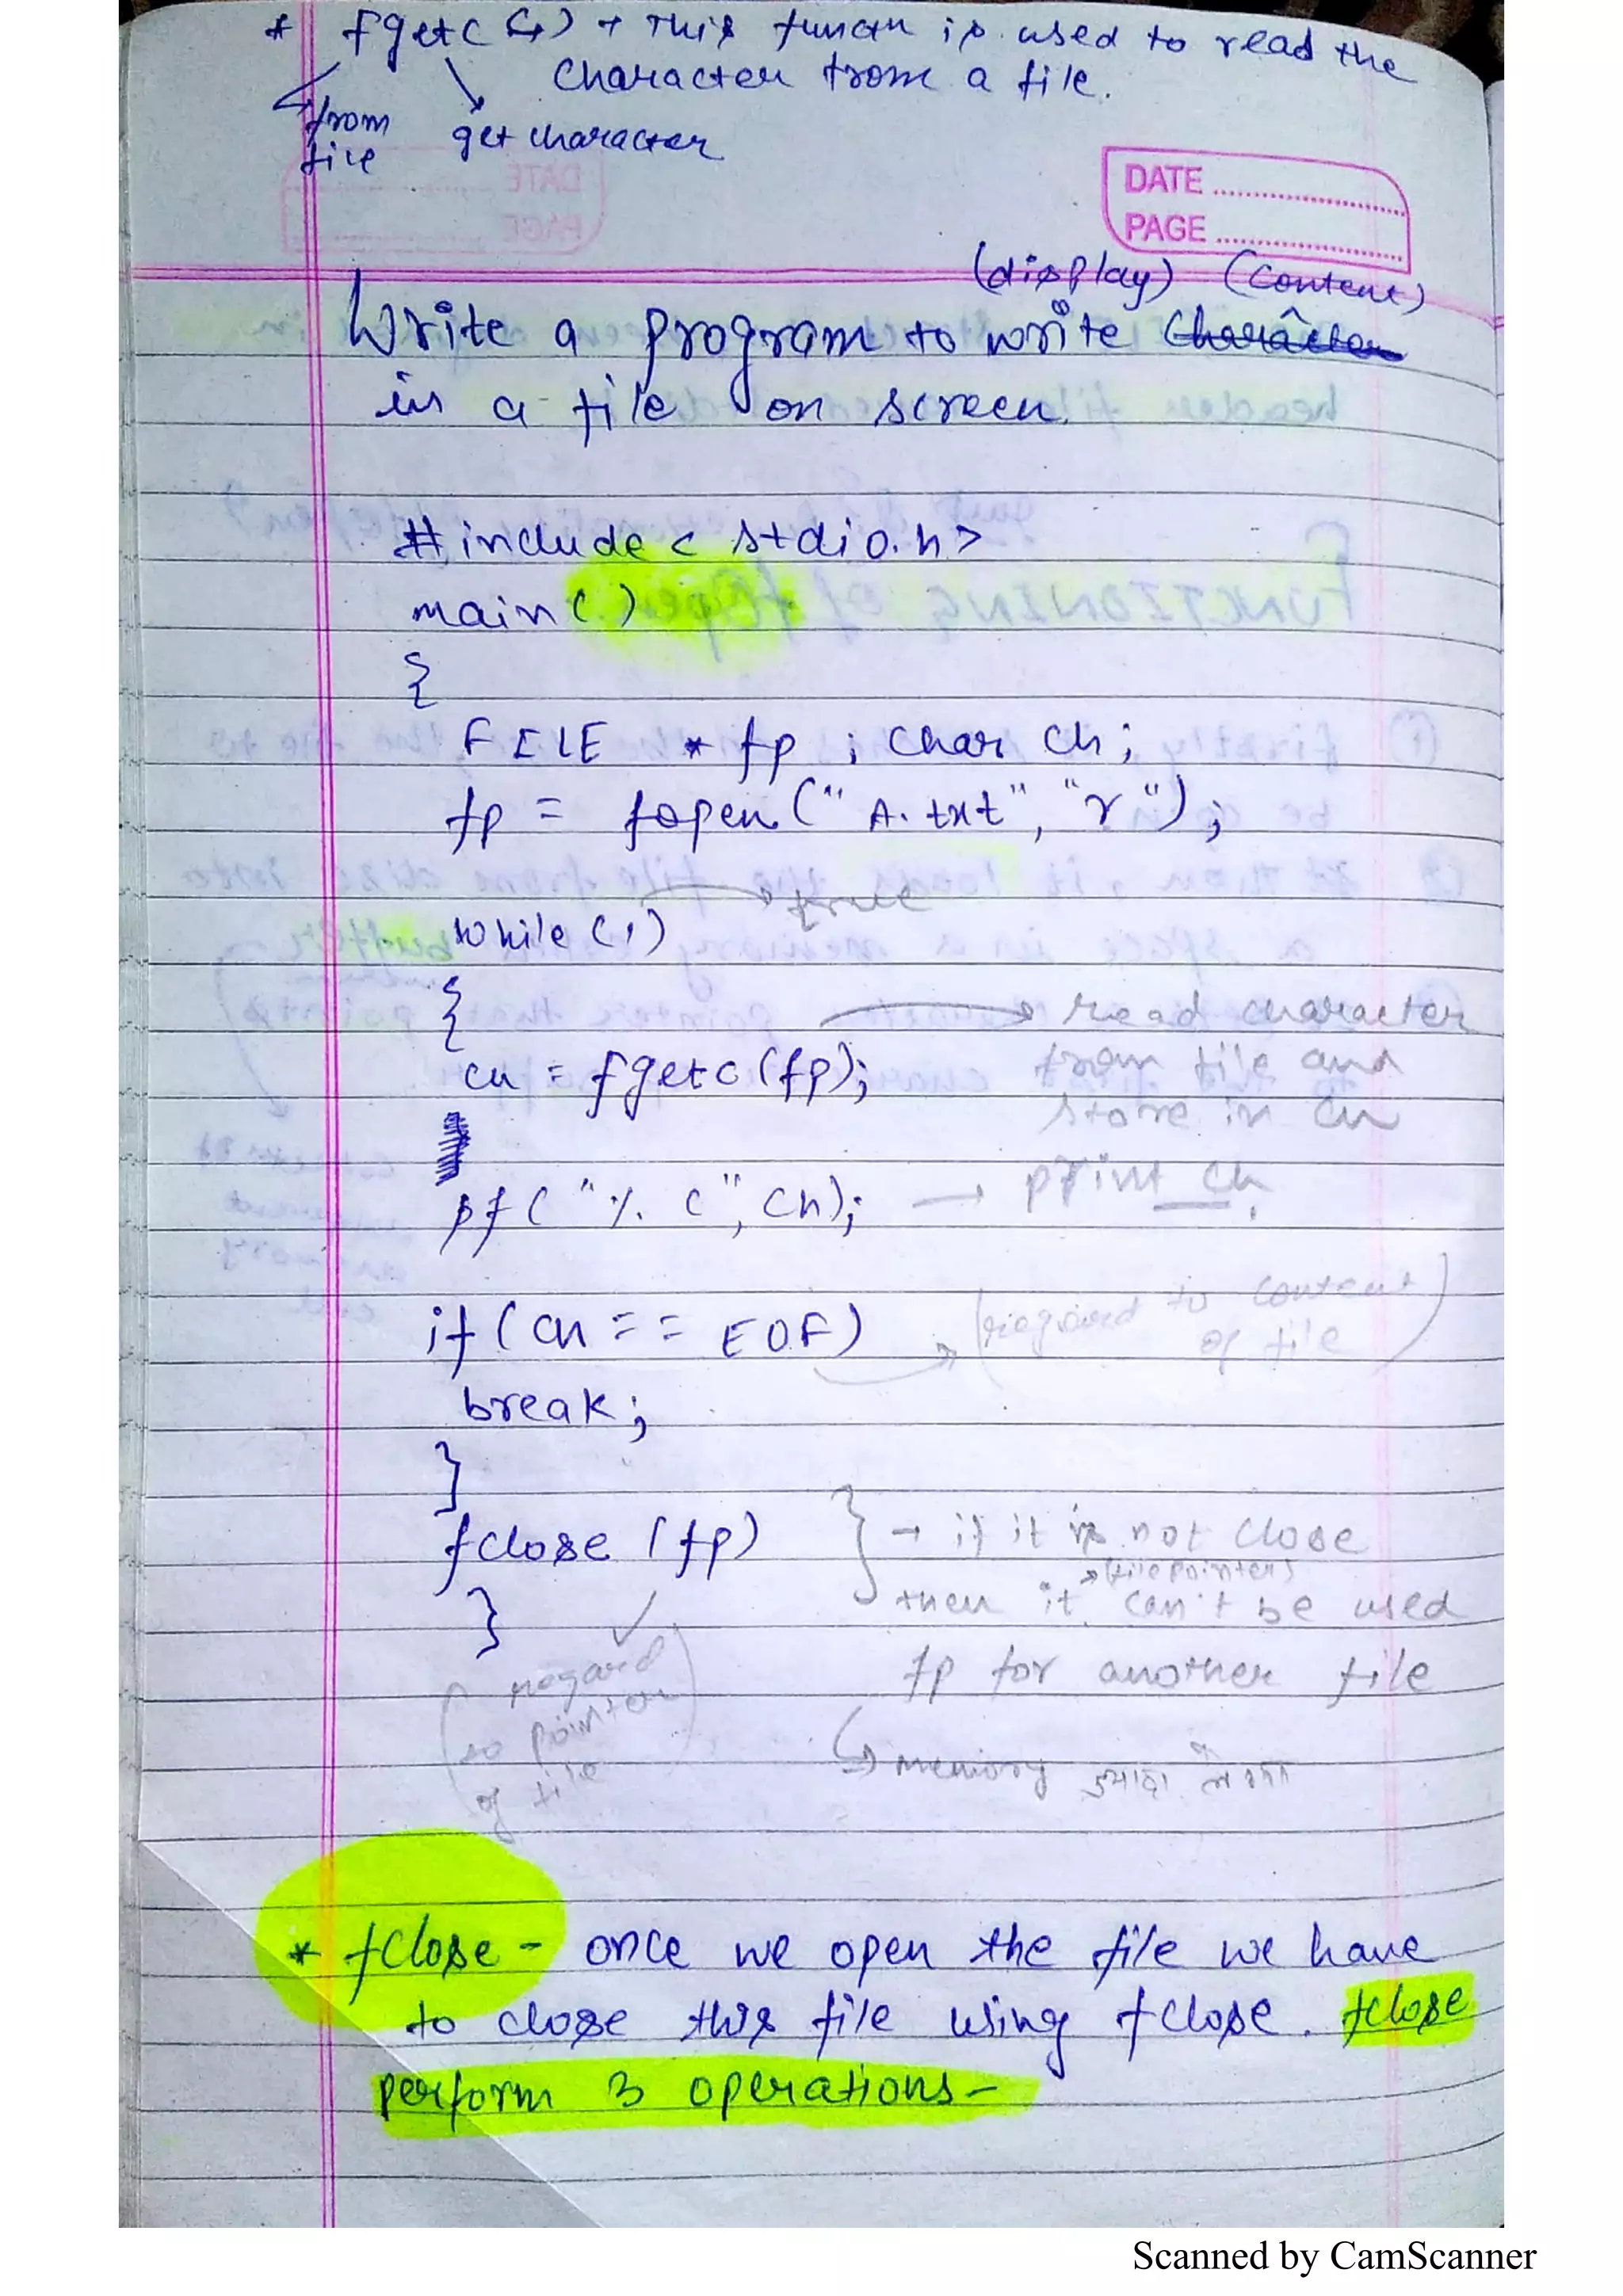 * fgetc () → This functn is used to read the
character from a file.
from
file
get character
DATE
PAGE
(display) (content)
Write a program to write character
in a file on screen.
#include < stdio.h>
main( )
{
FILE * fp ; char ch ;
fp = fopen (" A. txt", "r") ;
→ true
while (1)
{
→ read character
ch = fgetc (fp);
from file and
store in ch
pf ( "%. c", ch); → print ch.
if (ch == EOF)
(regard to content
of file)
break ;
}
fclose (fp) } → if it is not close
→ (file pointer)
then it can't be used
}
fp for another file
(regard
to pointer
of file
↳ memory ज्यादा लेगा
* fclose - once we open the file we have
to close this file using fclose. fclose
perform 3 operations-
Scanned by CamScanner